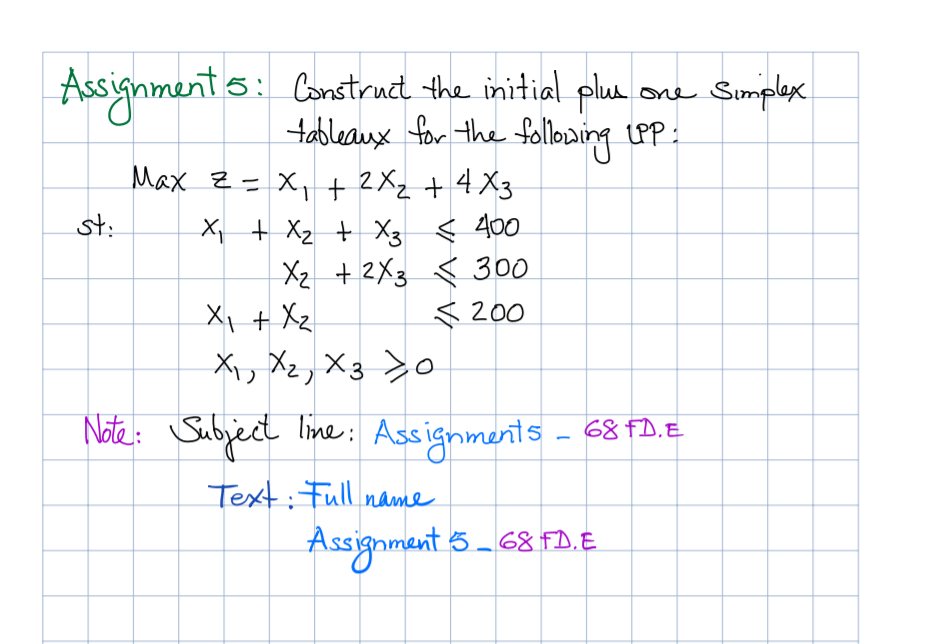 Assignment 5: Construct the initial plus one Simplex
tableaux for the following LPP:
Max z = x₁ + 2x₂ + 4x₃
st: x₁ + x₂ + x₃ ≤ 400
x₂ + 2x₃ ≤ 300
x₁ + x₂ ≤ 200
x₁, x₂, x₃ ≥ 0
Note: Subject line: Assignment 5 - 68 FD.E
Text: Full name
Assignment 5 - 68 FD.E